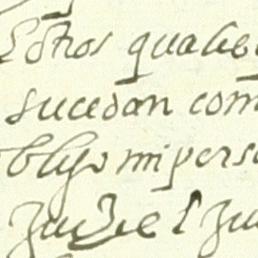 otros quale
sucedan com
obligo mi pers
Juez e l Ju